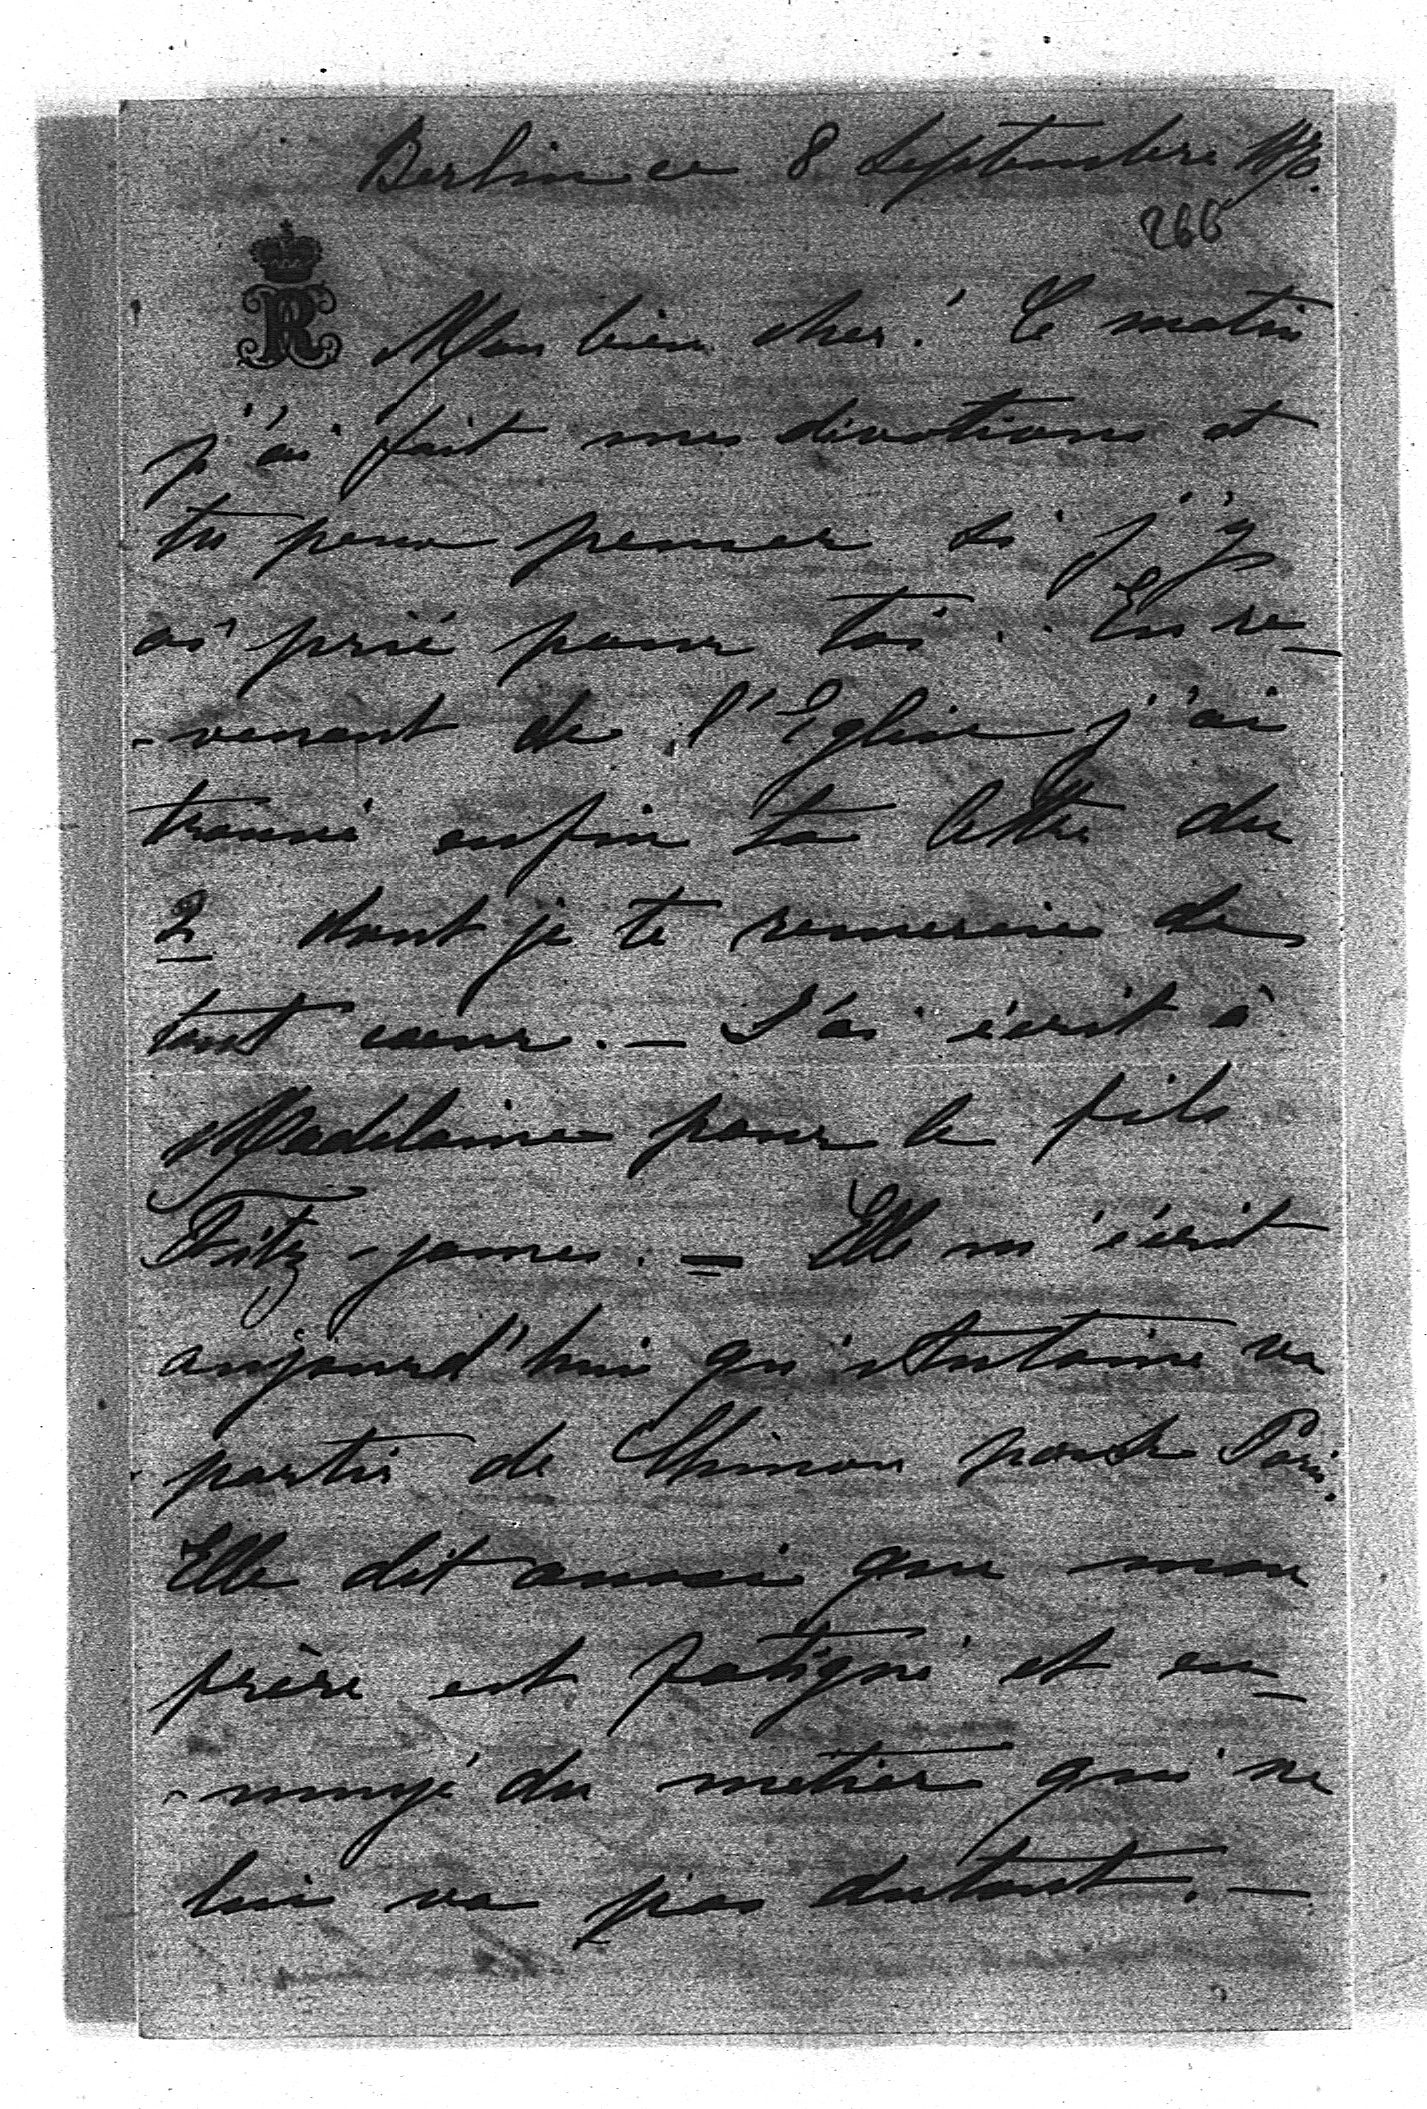 Berlin ce 8 Septembre 1870.
266
R
Mon bien cher! Ce matin
j'ai fait mes dévotions et
tu peux penser si j'y
ai prié pour toi.. En re-
-venant de l'Eglise j'ai
trouvé enfin ta lettre du
2 dont je te remercie de
tout coeur. — J'ai écrit à
Madelaine pour le fils
Fitz-james. — Elle m'écrit
aujourd'hui qu'Antoine va
partir de Chinon pour Paris.
Elle dit aussi que mon
frère est fatigué et en-
-nuyé du métier qui ne
lui va pas dutout. —